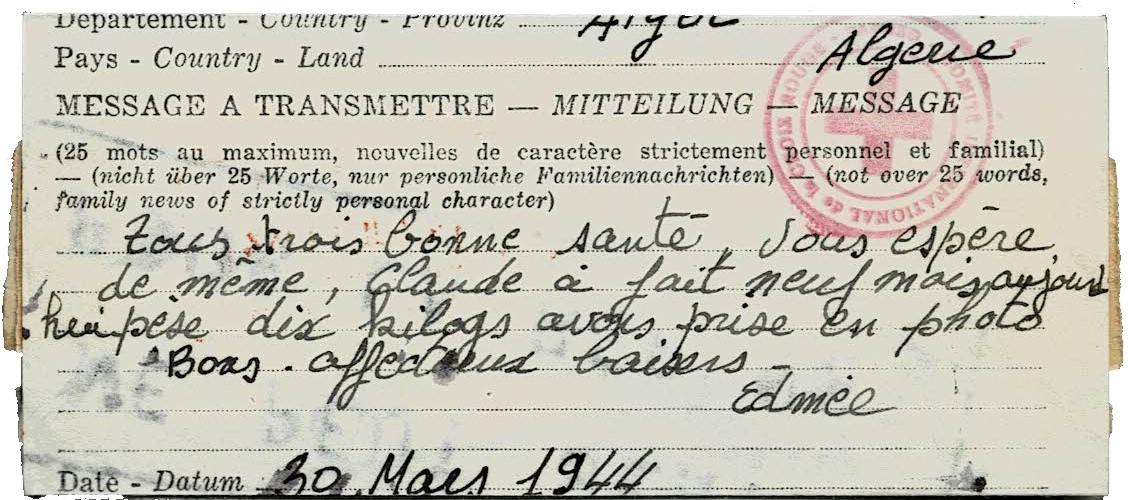 Département - Country - Provinz Alger
Pays - Country - Land Algerie
MESSAGE A TRANSMETTRE — MITTEILUNG — MESSAGE
(25 mots au maximum, nouvelles de caractère strictement personnel et familial)
— (nicht über 25 Worte, nur personliche Familiennachrichten) — (not over 25 words,
family news of strictly personal character)
Tous trois bonne santé, Vous espère
de même, Claude à fait neuf mois aujourd
hui pèse dix kilogs avons prise en photo
Bons affectueux baisers
Edmée
Date - Datum 30 Mars 1944